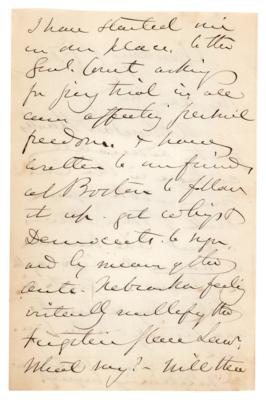 I have started one
in our place, to the
Genl. Court, asking
for jury trial in all
cases affecting personal
freedom. & have
written to my friends
at Boston to follow
it up. get Whigs &
Democrats to sign,
and by means of the
anti-Nebraska feeling
virtually nullify the
Fugitive Slave Law.
What say? - Will the